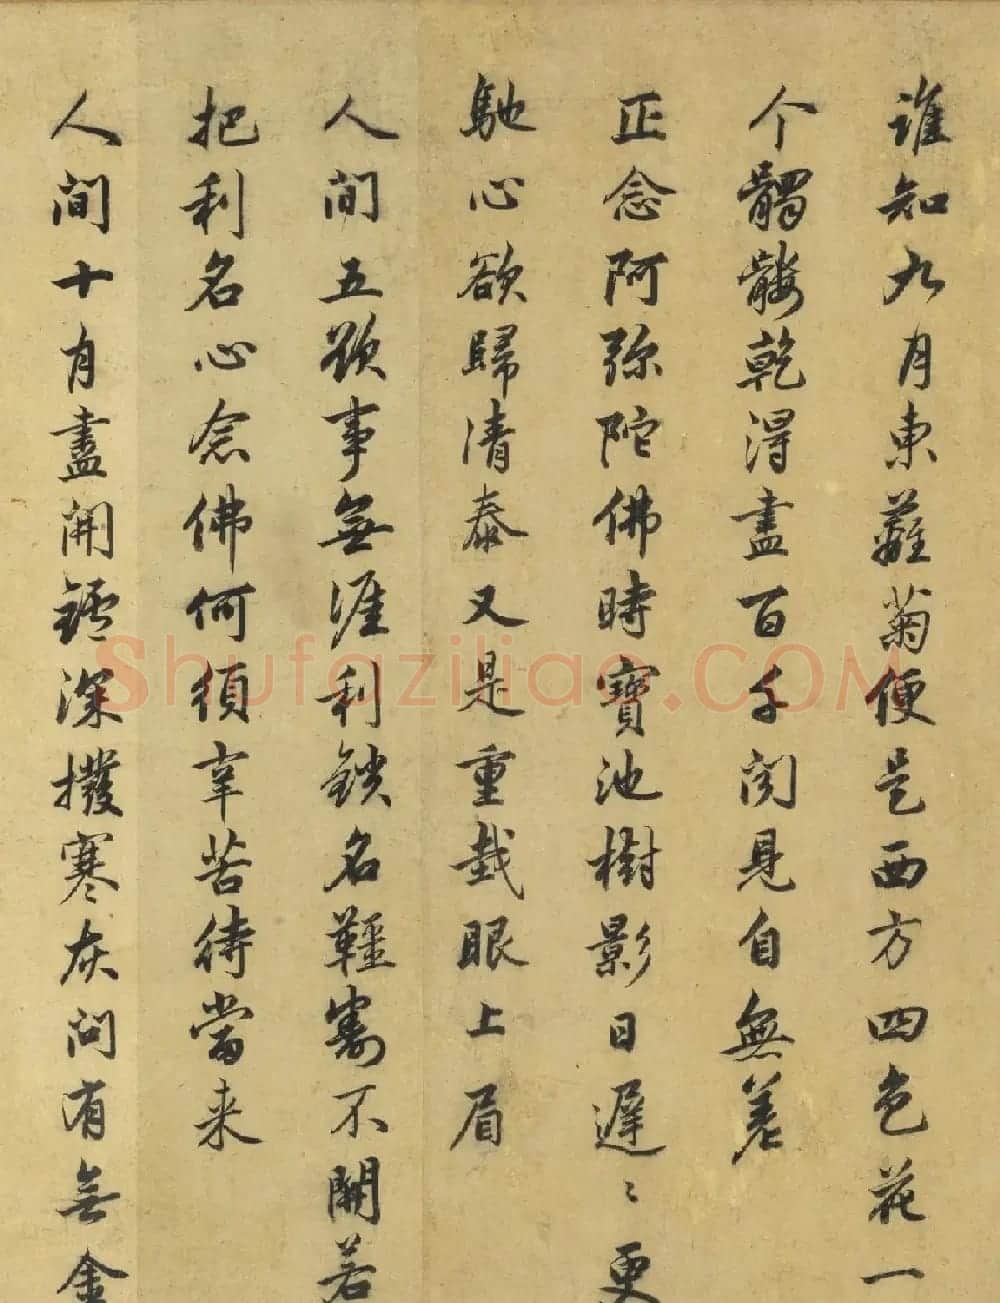 誰知九月東蘺菊便是西方四色花一
个髑髏乾得盡百千闻見自無差
正念阿弥陀佛時寶池樹影日遲〻更
馳心欲歸清泰又是重栽眼上眉
人间五欲事無涯利鎖名韁割不開若
把利名心念佛何須辛苦待當来
人间十有盡開鑪深撥寒灰问有無金
Shufaziliao.COM